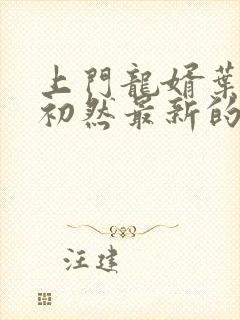 上門龍婿葉
初然最新的
汪建